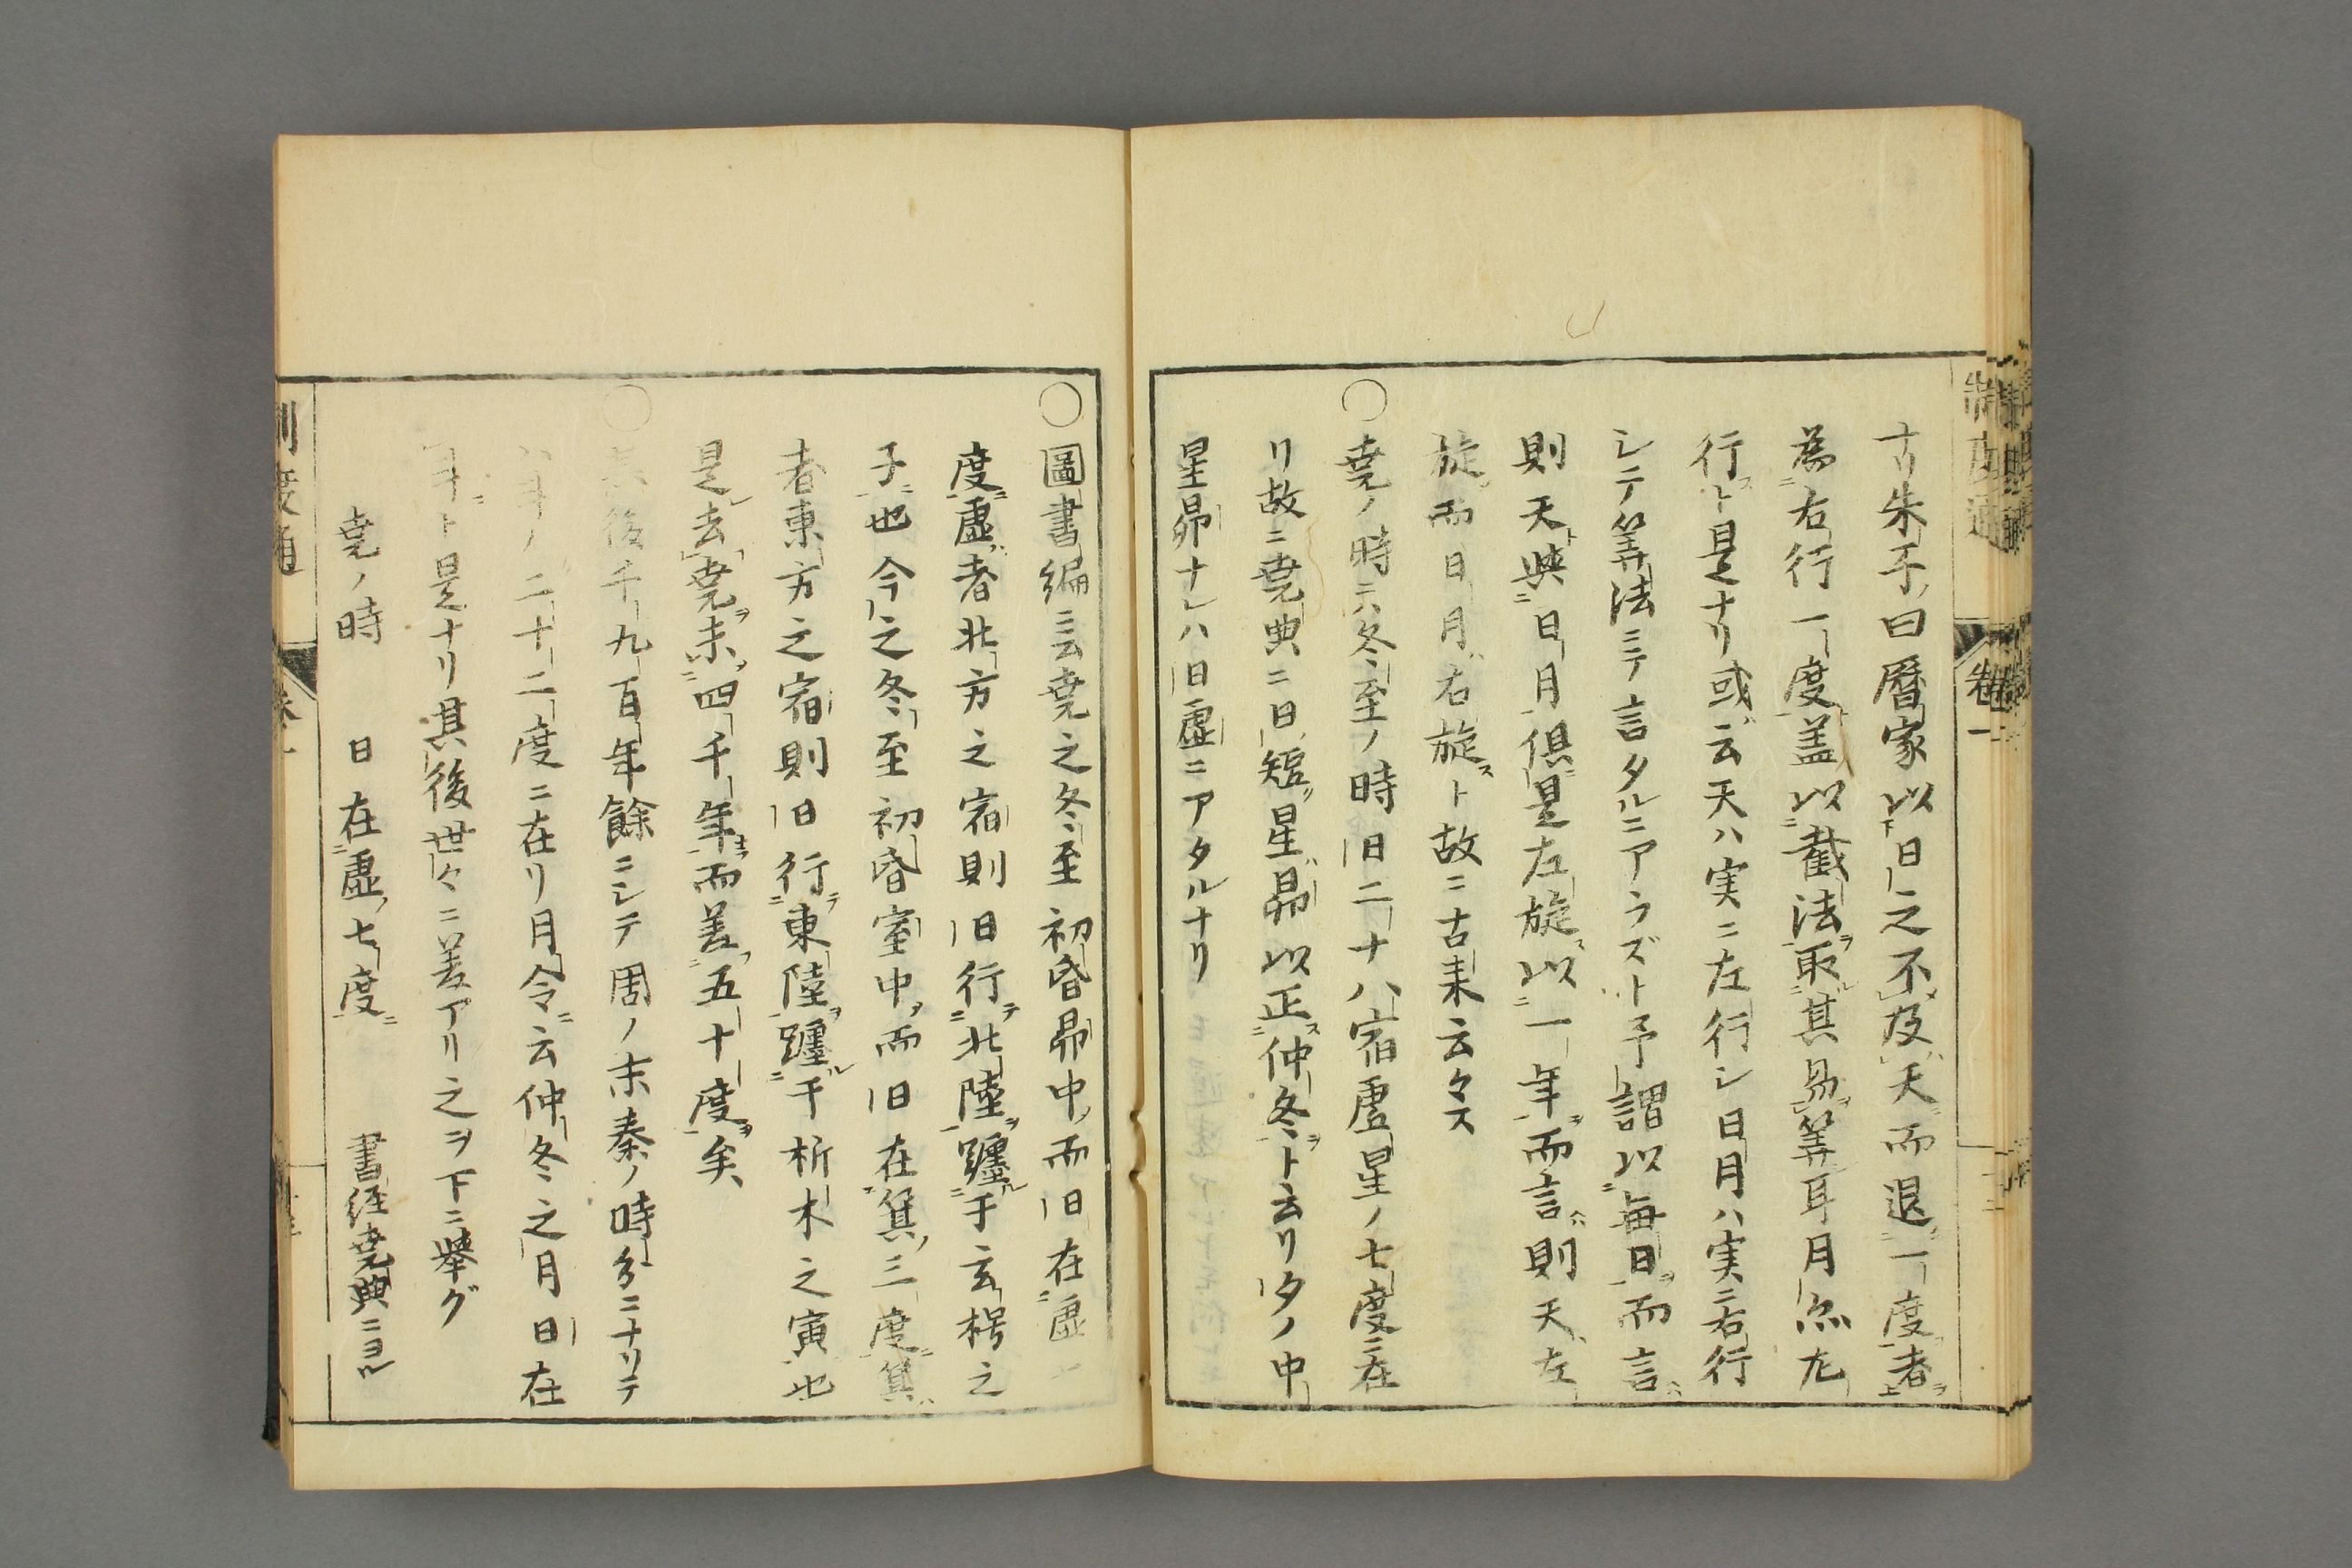 ナリ朱子曰暦家以日之不及天而退一度者
為右行一度蓋以截法取其易筭耳月尓尤
行ト是ナリ或云天ハ実ニ左行シ日月ハ実ニ右行
シテ筭法ニテ言タルニアラズト予謂以毎日而言
則天與日月倶是左旋以一年而言則天左
旋而日月右旋ト故ニ古来云々ス
○堯ノ時ニハ冬至ノ時日二十八宿虚星ノ七度ニ在
リ故ニ堯典ニ日短星昴以正仲冬ト云リタノ中
星昴ナレハ日虚ニアタルナリ
○圖書編ニ云堯之冬至初昏昴中而日在虚
度虚者北方之宿則日行北陸躔于玄枵之
子也今之冬至初昏室中而日在箕三度箕
者東方之宿則日行東陸躔于析木之寅也
是去堯未四千年而差五十度矣
○後千九百年餘ニシテ周ノ末秦ノ時分ニナリテ
ノ二十二度ニ在リ月令云仲冬之月日在
ト是ナリ其後世々ニ差アリ之ヲ下ニ擧グ
堯ノ時 日在虚七度 書経堯典ニヨル
制度通
卷一